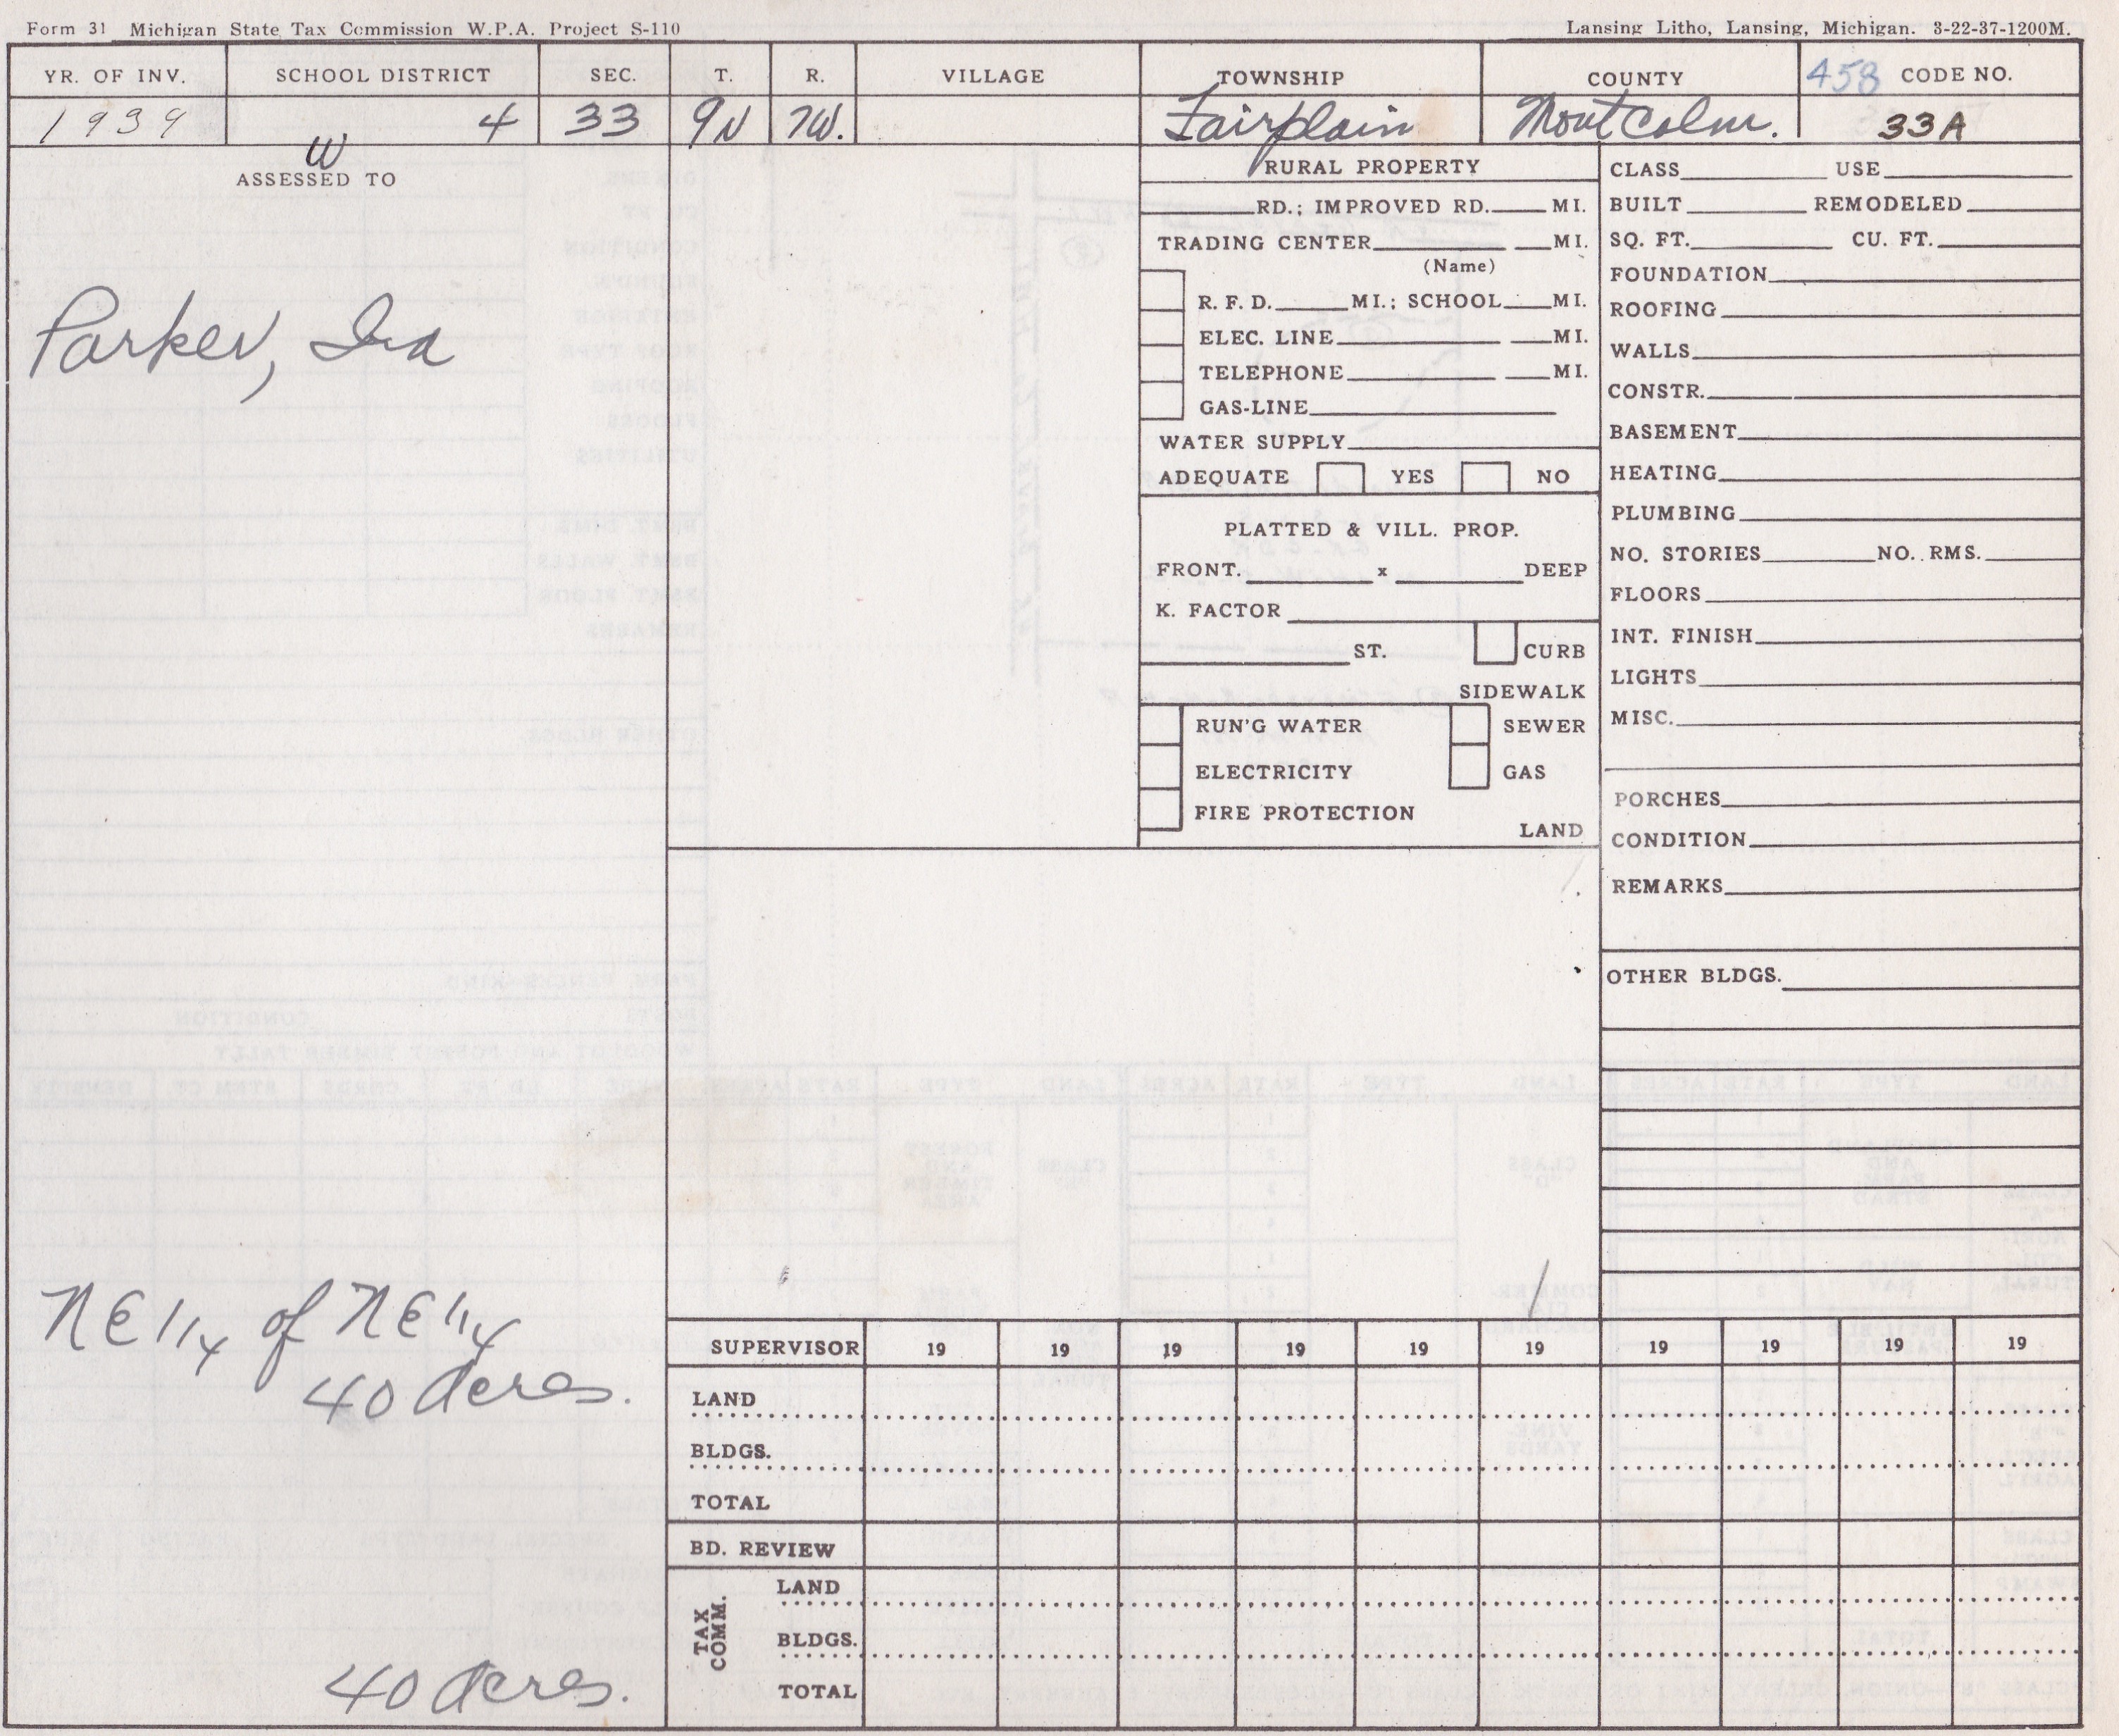 Form 31 Michigan State Tax Commission W.P.A. Project S-110
Lansing Litho, Lansing, Michigan. 3-22-37-1200M.
YR. OF INV. SCHOOL DISTRICT SEC. T. R. VILLAGE TOWNSHIP COUNTY 458 CODE NO.
1939 4 33 9N 7W. Fairplain Montcalm. 33A
W
ASSESSED TO
Parker, Ira
NE 1/4 of NE 1/4
40 Acres.
40 Acres.
RURAL PROPERTY
RD.; IMPROVED RD. MI.
TRADING CENTER MI.
(Name)
R. F. D. MI.; SCHOOL MI.
ELEC. LINE MI.
TELEPHONE MI.
GAS-LINE
WATER SUPPLY
ADEQUATE YES NO
PLATTED & VILL. PROP.
FRONT. x DEEP
K. FACTOR
ST. CURB
SIDEWALK
RUN'G WATER SEWER
ELECTRICITY GAS
FIRE PROTECTION
LAND
CLASS USE
BUILT REMODELED
SQ. FT. CU. FT.
FOUNDATION
ROOFING
WALLS
CONSTR.
BASEMENT
HEATING
PLUMBING
NO. STORIES NO. RMS.
FLOORS
INT. FINISH
LIGHTS
MISC.
PORCHES
CONDITION
REMARKS
OTHER BLDGS.
SUPERVISOR 19 19 19 19 19 19 19 19 19 19
LAND
BLDGS.
TOTAL
BD. REVIEW
TAX COMM.
LAND
BLDGS.
TOTAL